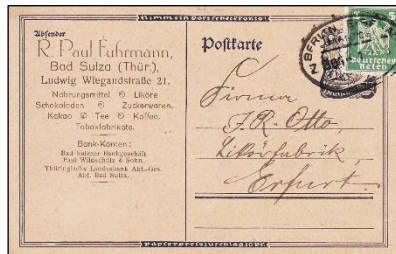 Absender
R. Paul Fuhrmann,
Bad Sulza (Thür.),
Ludwig Wiegandstraße 21.
Nahrungsmittel Liköre
Schokoladen Zuckerwaren.
Kakao Tee Kaffee.
Tabakfabrikate.
Bank-Konten:
Bad Sulzaer Bankgeschäft
Paul Wildschütz & Sohn.
Thüringische Landesbank Akt.-Ges.
Abt. Bad Sulza.
Postkarte
Deutsches
Reich
Firma
J. R. Otto,
Likörfabrik,
Erfurt.